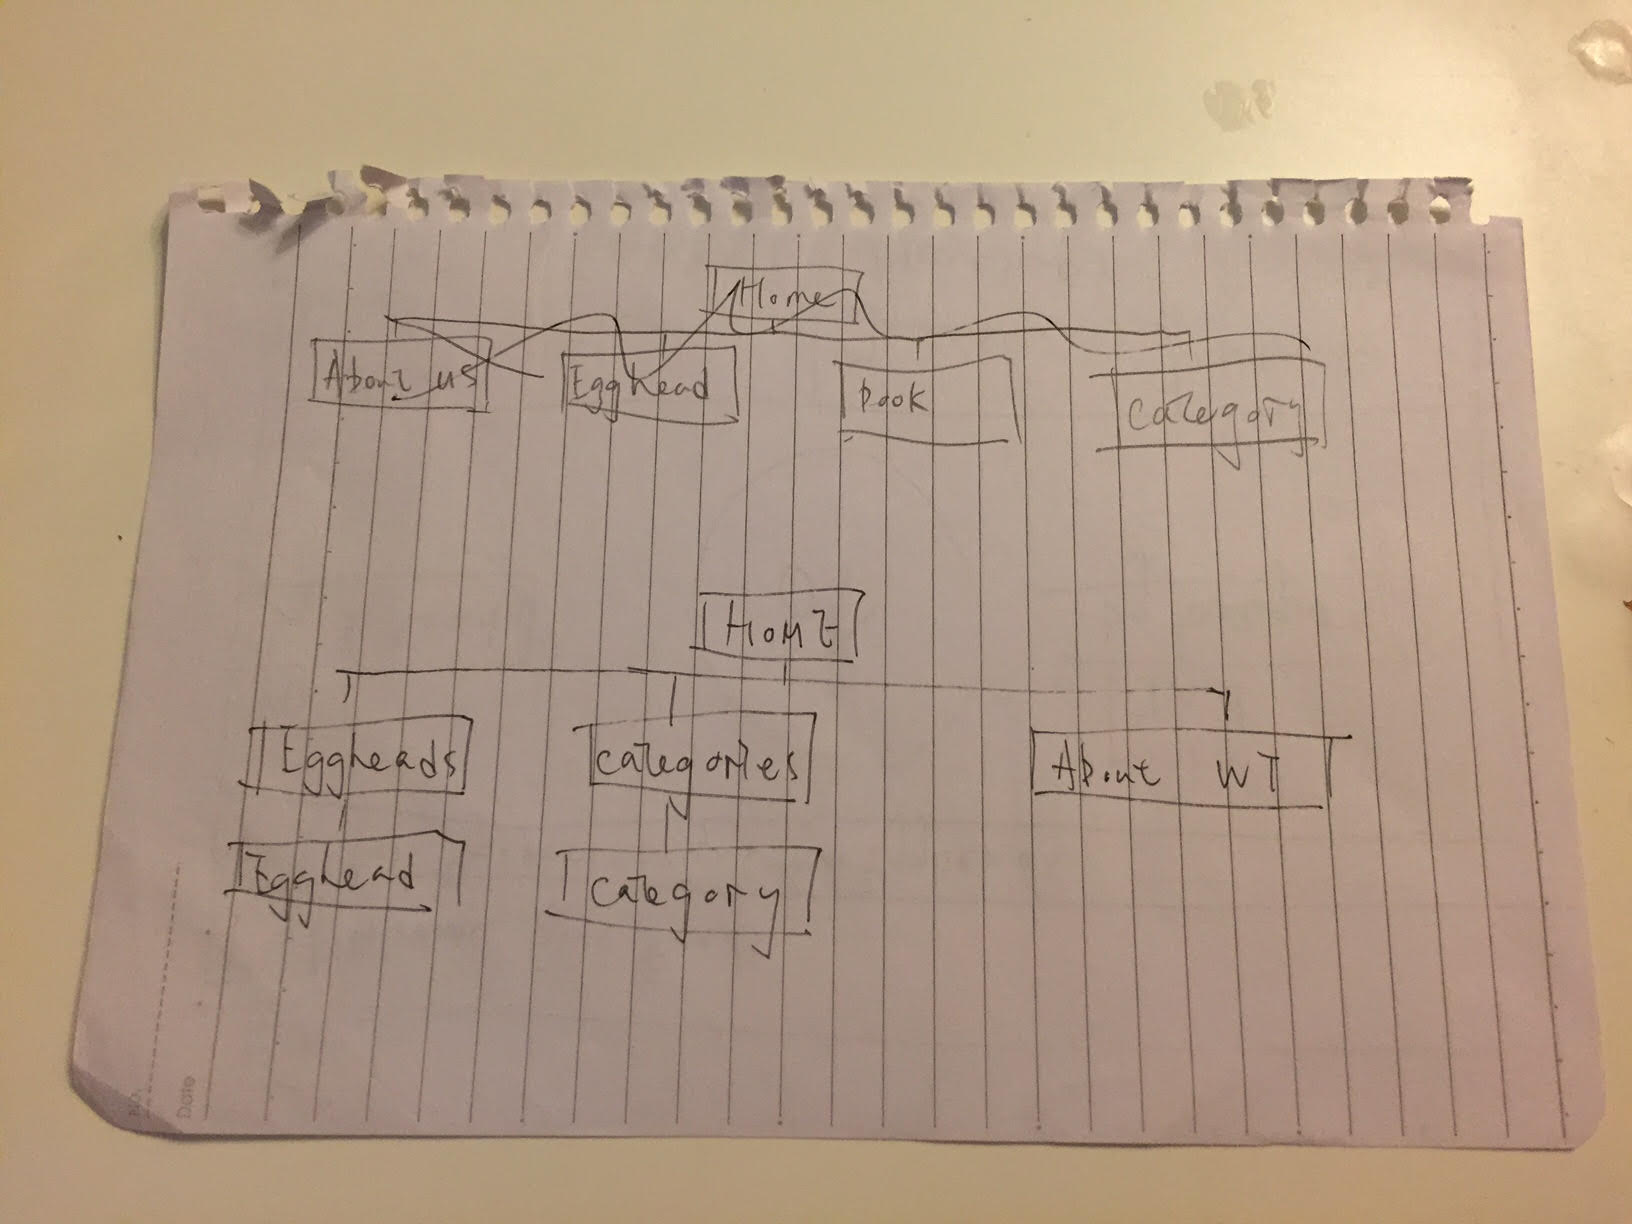 Home
About us Egghead book category
HOME
Eggheads categories About WT
Egghead category
No.
Date